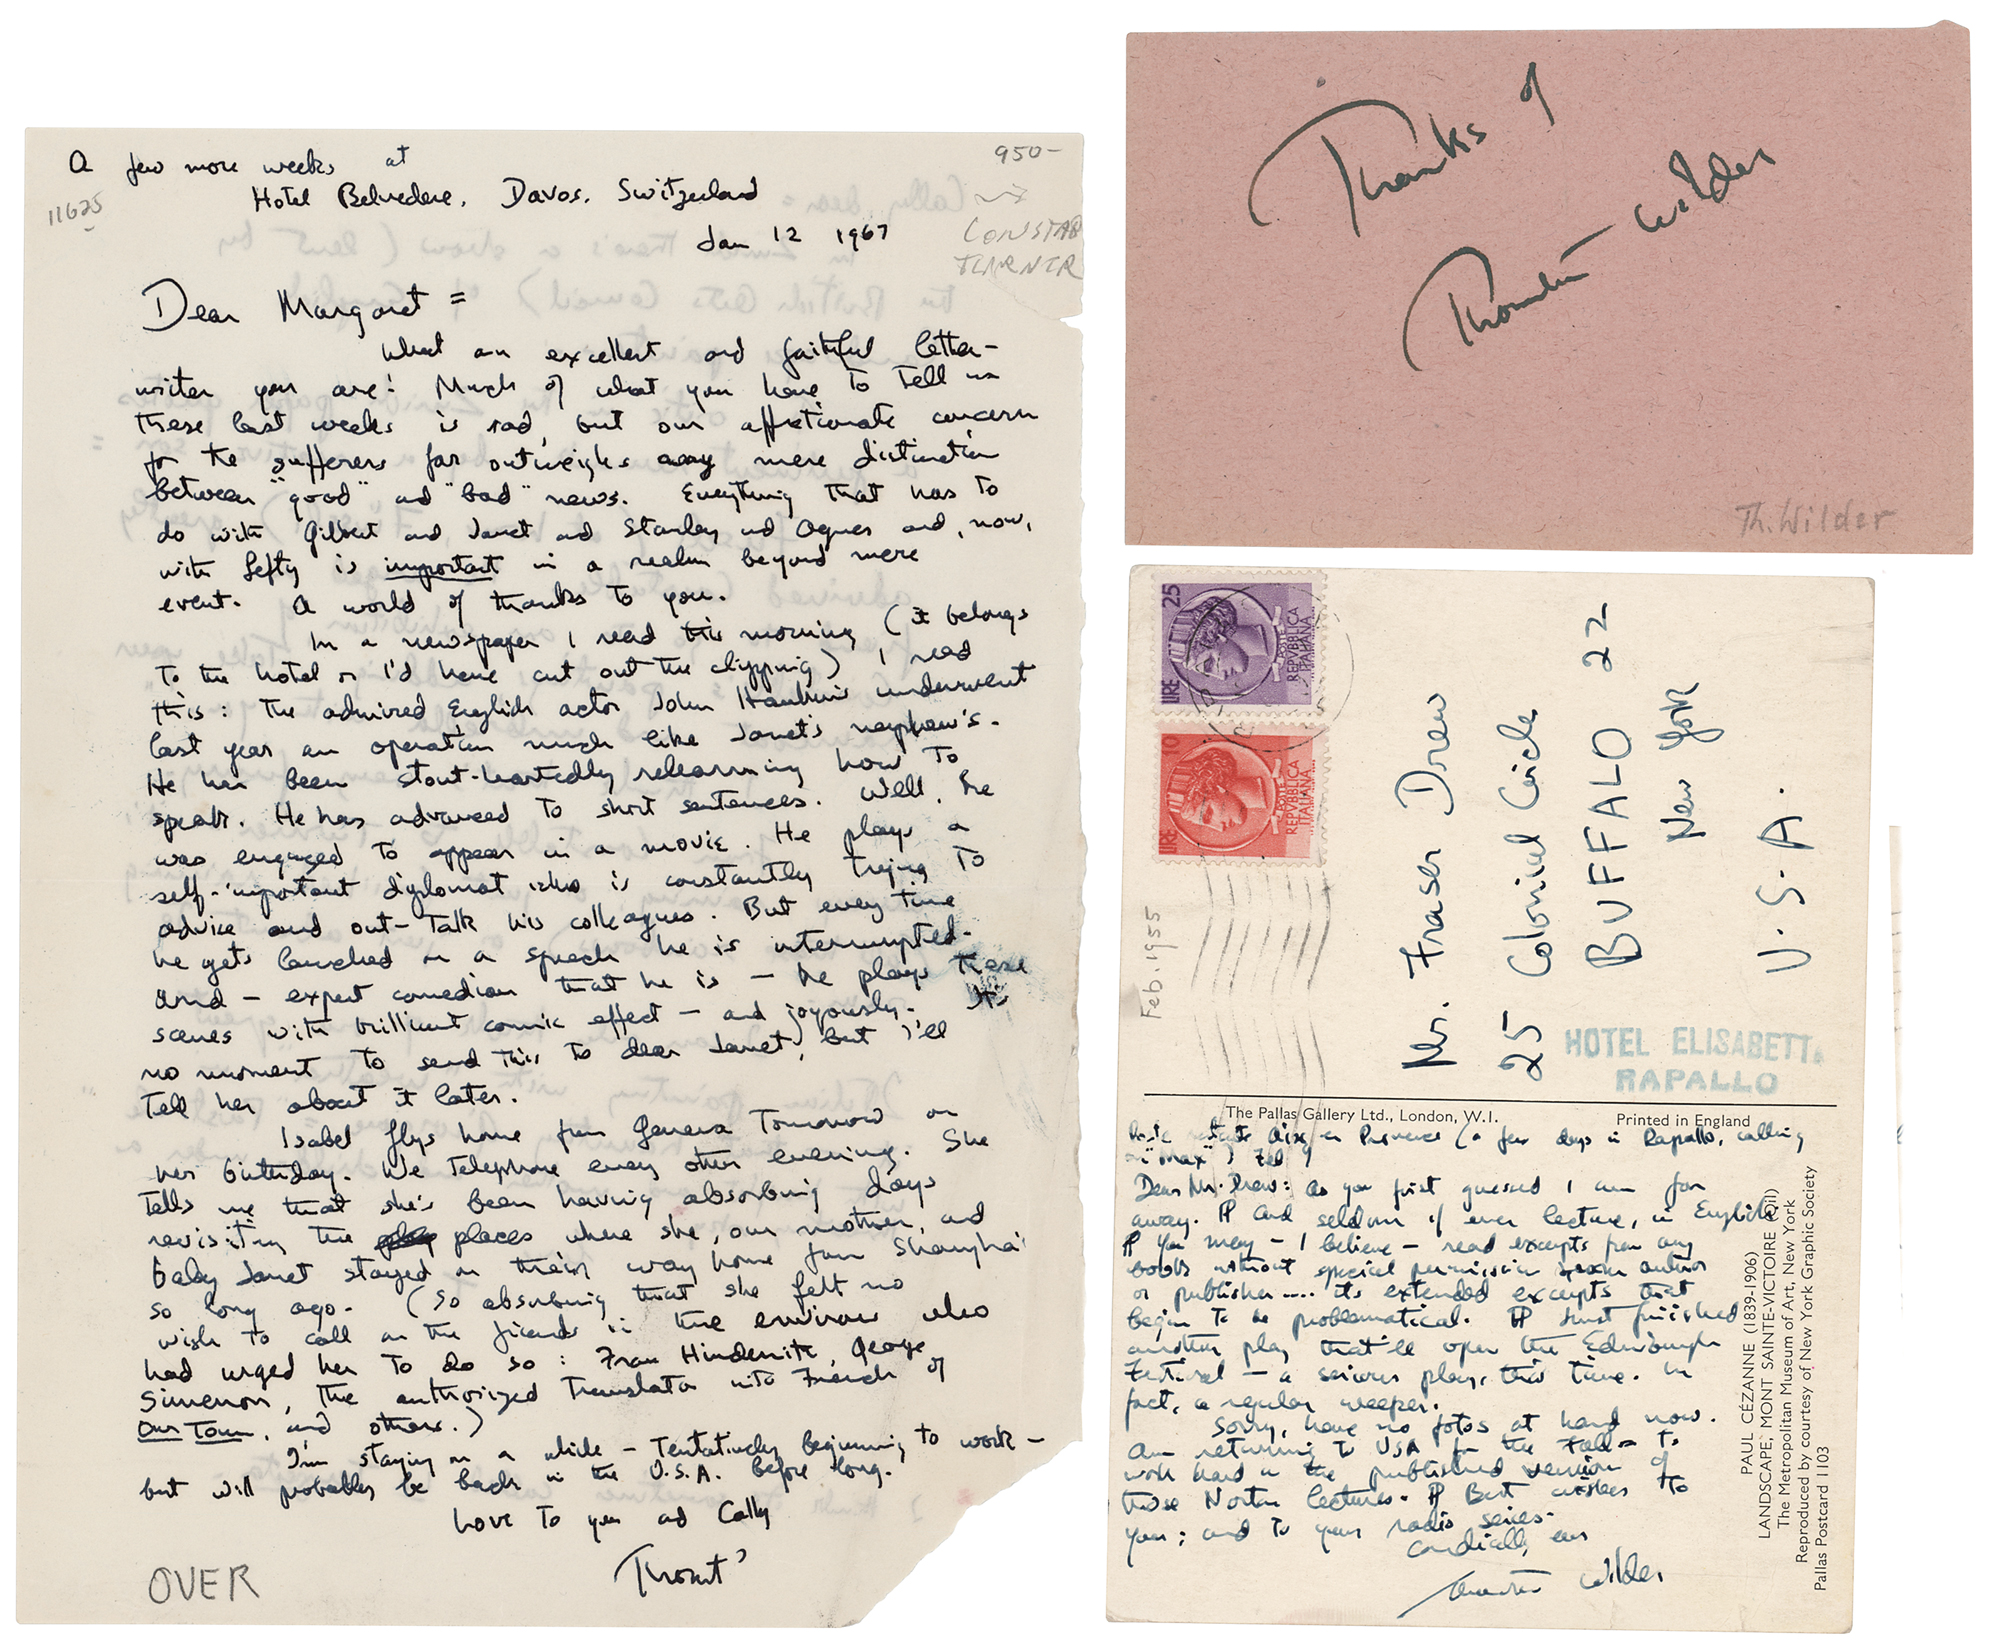 A few more weeks at
Hotel Belvedere, Davos, Switzerland
Jan 12 1967
11625
950-
CONSTAB
TURNER
Dear Margaret =
What an excellent and faithful letter-
writer you are! Much of what you have to tell us
these last weeks is sad, but our affectionate concern
for the sufferers far outweighs any mere distinction
between "good" and "bad" news. Everything that has to
do with Gilbert and Janet and Stanley and Agnes and, now,
with Lefty is important in a realm beyond mere
event. A world of thanks to you.
In a newspaper I read this morning (it belongs
to the hotel or I'd have cut out the clipping) I read
this: The admired English actor John Hawkins underwent
last year an operation much like Janet's nephew's.
He has been stout-heartedly relearning how to
speak. He has advanced to short sentences. Well, he
was engaged to appear in a movie. He plays a
self-important diplomat who is constantly trying to
advice and out-talk his colleagues. But every time
he gets launched on a speech he is interrupted.
And – expert comedian that he is – he plays these
scenes with brilliant comic effect – and joyously. It's
no moment to send this to dear Janet, but I'll
tell her about it later.
Isabel flys home from Geneva tomorrow on
her birthday. We telephone every other evening. She
tells me that she's been having absorbing days
revisiting the places where she, our mother, and
baby Janet stayed on their way home from Shanghai
so long ago. (So absorbing that she felt no
wish to call on the friends in the environs who
had urged her to do so: Frau Hindemith, George
Simenon, the authorized translator into French of
Our Town, and others.)
I'm staying on a while – tentatively beginning to work –
but will probably be back in the U.S.A. before long.
Love to you and Cally
Thornt'
OVER
Thanks of
Thornton Wilder
Th. Wilder
LIRE 25
POSTE
REPVBBLICA
ITALIANA
LIRE 10
POSTE
REPVBBLICA
ITALIANA
Feb. 1955
Mr. Fraser Drew
25 Colonial Circle
BUFFALO 22
New York
U.S.A.
HOTEL ELISABETTA
RAPALLO
The Pallas Gallery Ltd., London, W.1. Printed in England
Poste restante Aix-en Provence (a few days in Rapallo, calling
on "Max") Feb 9
Dear Mr. Drew: As you first guessed I am far
away. ¶ And seldom if ever lecture, in English.
¶ You may – I believe – read excerpts from any
books without special permission from author
or publisher.... its extended excerpts that
begin to be problematical. ¶ Just finished
another play that'll open the Edinburgh
Festival – a serious play, this time. In
fact, a regular weeper.
Sorry, have no fotos at hand now.
Am returning to USA for the Fall – to
work hard on the published version of
those Norton lectures. ¶ Best wishes to
you; and to your radio series.
Cordially, ever
Thornton Wilder
PAUL CÉZANNE (1839-1906)
LANDSCAPE, MONT SAINTE-VICTOIRE (Oil)
The Metropolitan Museum of Art, New York
Reproduced by courtesy of New York Graphic Society
Pallas Postcard 1103